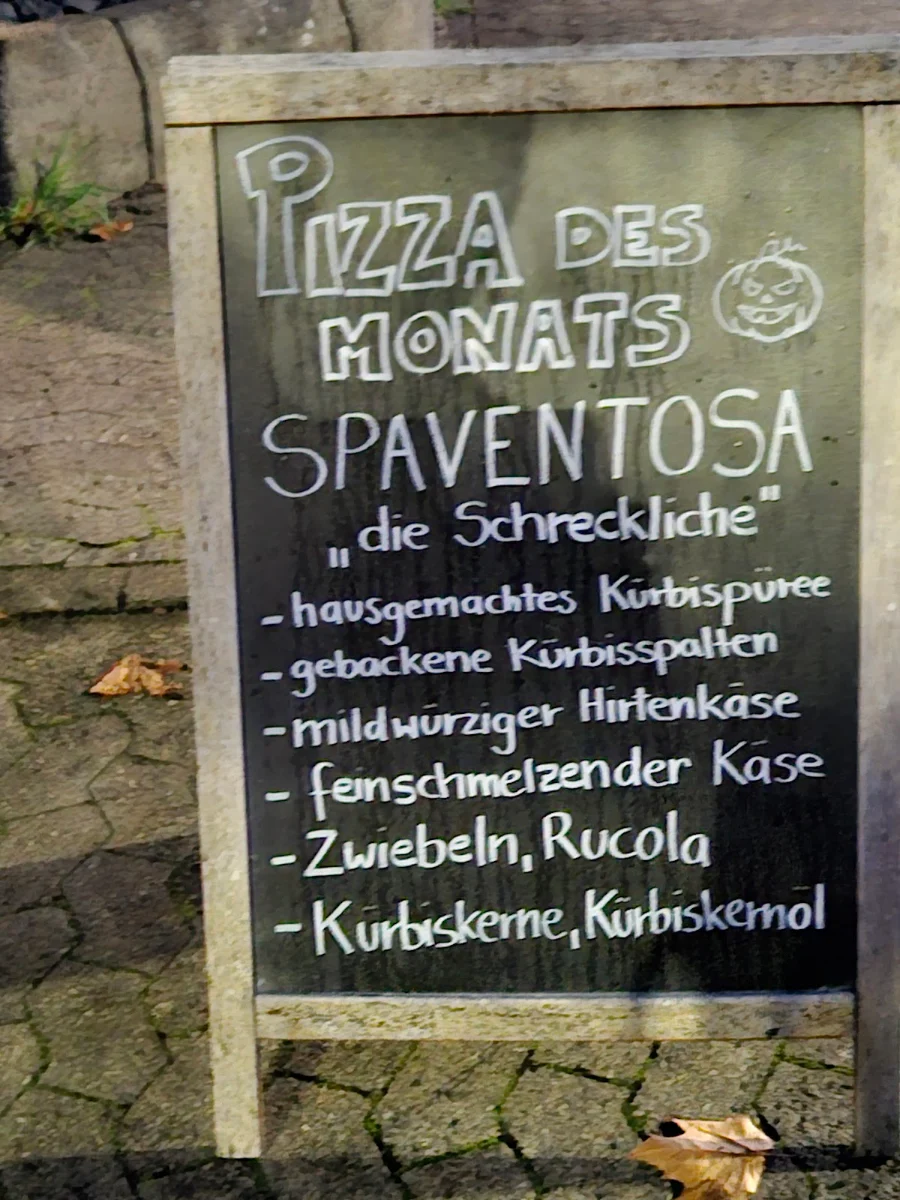 PIZZA DES
MONATS
SPAVENTOSA
„die Schreckliche"
- hausgemachtes Kürbispüree
- gebackene Kürbisspalten
- mildwürziger Hirtenkäse
- feinschmelzender Käse
- Zwiebeln, Rucola
- Kürbiskerne, Kürbiskernöl